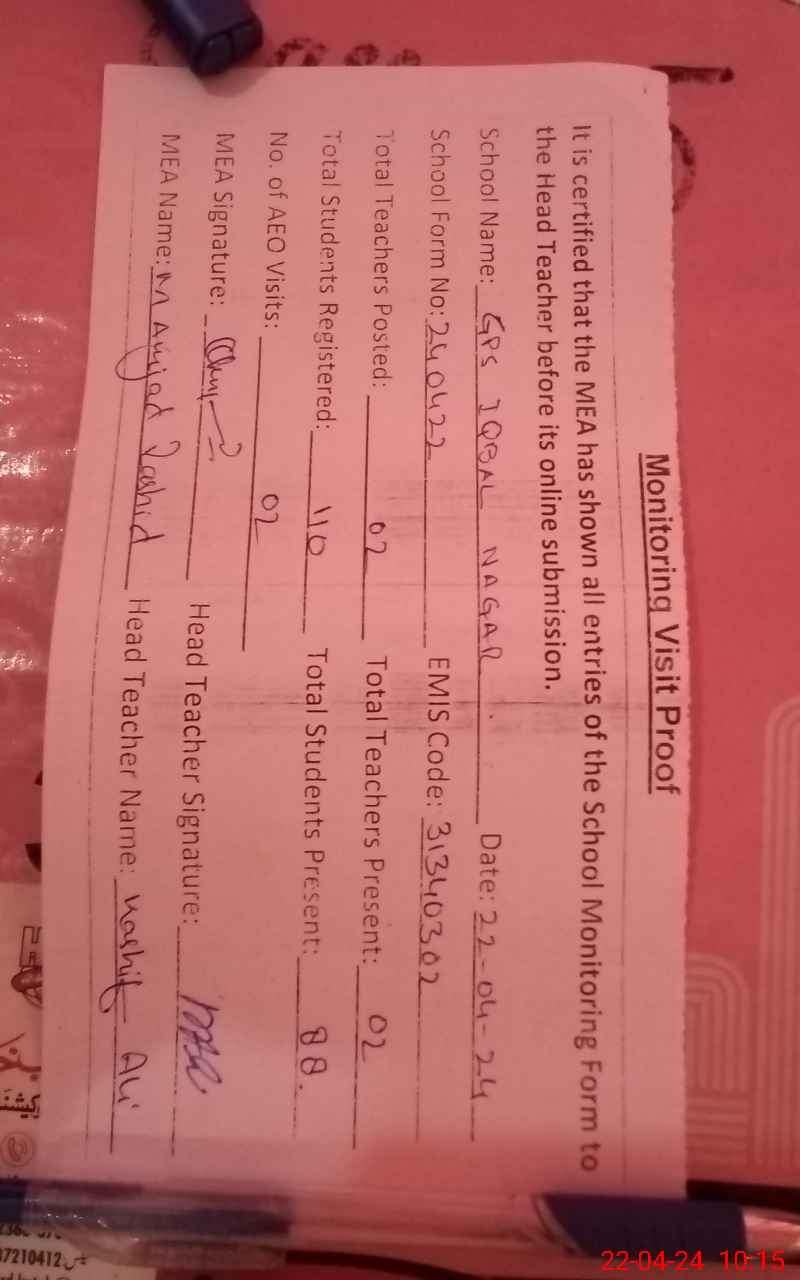 Monitoring Visit Proof
It is certified that the MEA has shown all entries of the School Monitoring Form to
the Head Teacher before its online submission.
School Name: GPS IQBAL NAGAR. Date: 22-04-24
School Form No: 240422 EMIS Code: 31340302
Total Teachers Posted: 02 Total Teachers Present: 02
Total Students Registered: 110 Total Students Present: 88.
No. of AEO Visits: 02
MEA Signature: Head Teacher Signature:
MEA Name: M Amjad Rashid Head Teacher Name: Kashif Ali
37210412
22-04-24 10:15